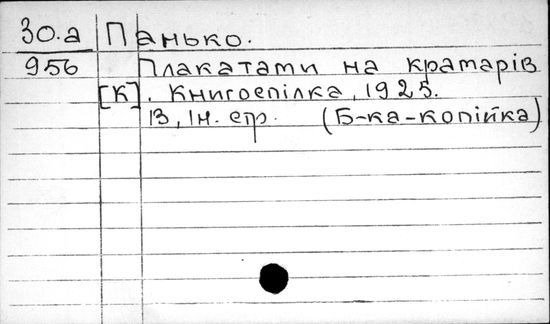 30.а Панько.
956 Плакатами на крамарів
[К]. Книгоспілка, 1925.
13, 1н. стр. (Б-ка-копійка)